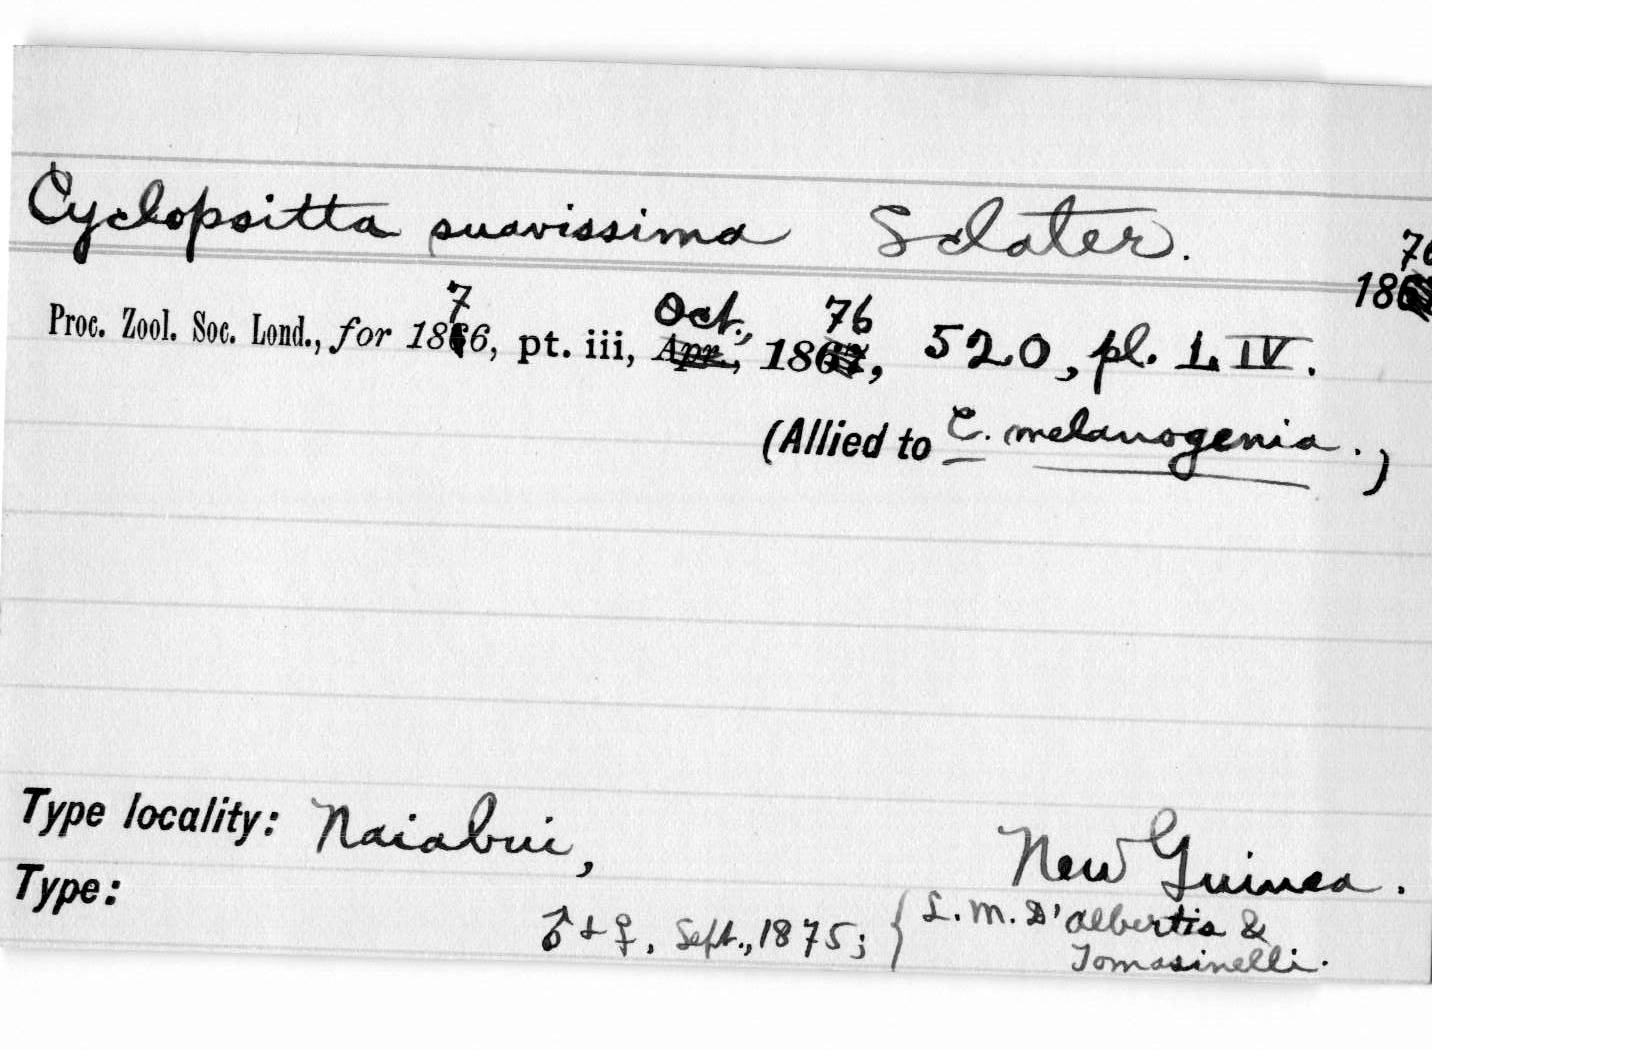 Cyclopsitta suavissima Sclater.
76
1867
7 Oct., 76
Proc. Zool. Soc. Lond., for 1866, pt. iii, Apr., 1867, 520, pl. LIV.
(Allied to C. melanogenia.)
Type locality: Naiabui, New Guinea.
Type:
♂ + ♀, Sept., 1875; { L. M. D'Albertis &
Tomasinelli.